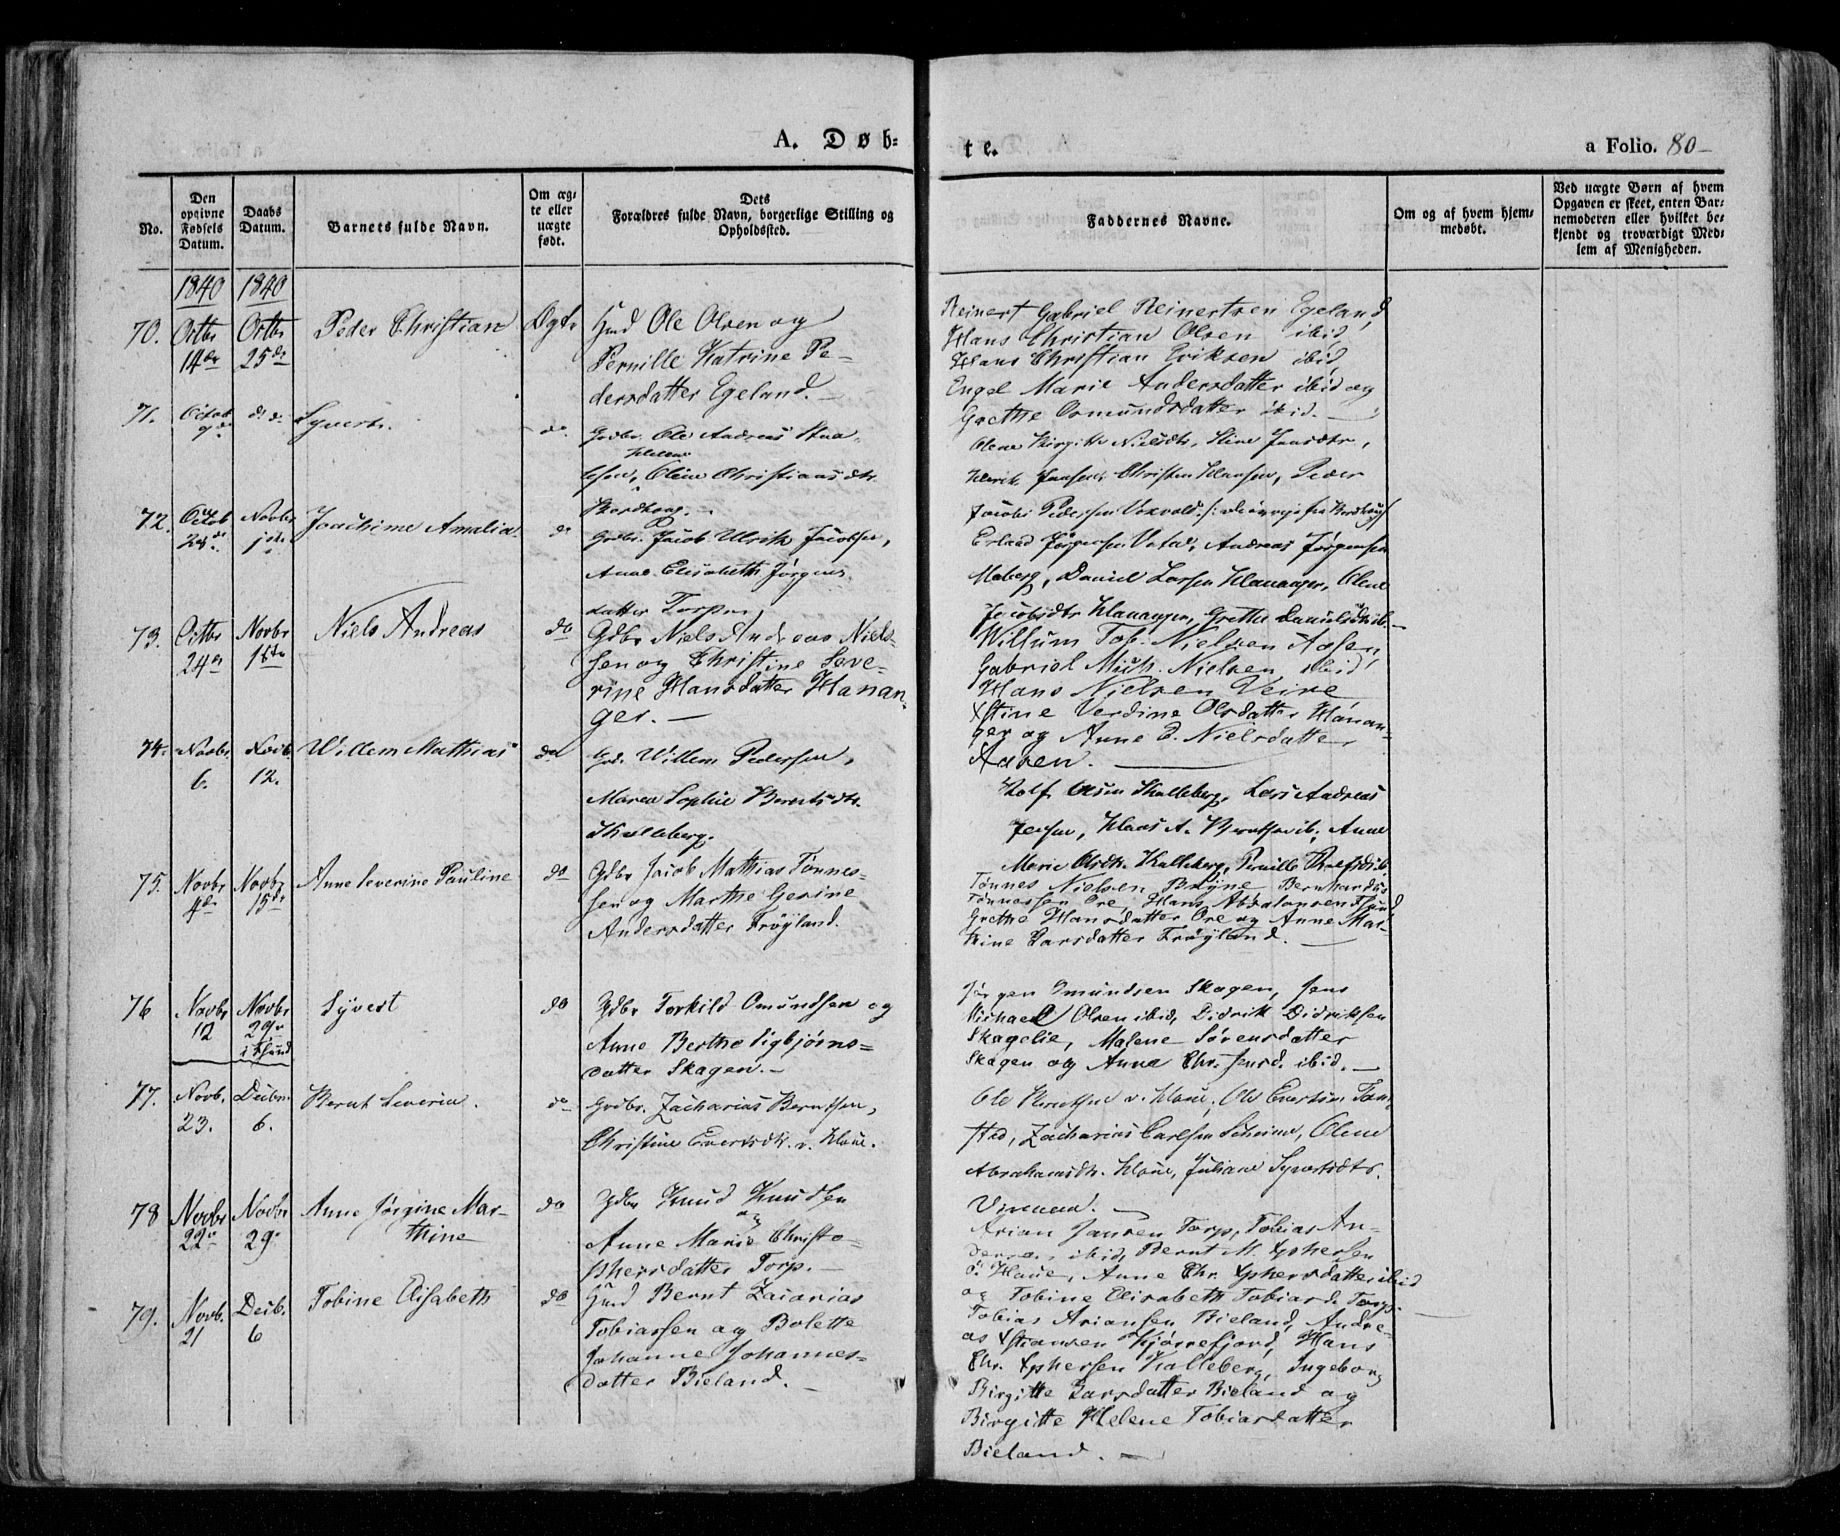 A. Døb=
te.
a Folio. 80
No.
Den opgivne Fødsels Datum.
Daabs Datum.
Barnets fulde Navn.
Om æg-te eller uægte født.
Dets Forældres fulde Navn, borgerlige Stilling og Opholdssted.
Faddernes Navne.
Om og af hvem hjem-medøbt.
Ved uægte Børn af hvem Opgaven er skeet, enten Bar-nemoderen eller hvilket be-kjendt og troværdigt Med-lem af Menigheden.
1840 1840
70. Octbr 14de Octbr 25de Peder Christian Ægte
Hmd Ole Olsen og
Pernille Katrine Pe-
dersdatter Egeland.
Reinert Gabriel Reinertsen Egeland,
Hans Christian Olsen ibid,
Hans Christian Eriksen ibid,
Engel Marie Andersdatter ibid og
Grethe Osmundsdatter ibid.
71. Octob 9de do do Syvert. do
Grdbr. Ole Andreas
Olene Christiansdtr
Olene Birgitte Nielsdtr, Stine Jensdtr,
Henrik Jansen, Christen Hansen, Peder
Jacobs Pedersen
72. Octob Novbr 1ste Joachime Amalia. do
Grdbr. Jacob Ulrik Jacobsen,
Anne Elisabeth Jørgens-
datter Torp
Erland Jørgensen Vatne, Andreas Jørgensen
Moberg, Daniel Larsen Hananger, Olene
Jacobsdtr Hananger, Grethe Danielsdtr ib.
73. Octbr 24de Novbr 1ste Niels Andreas do
Gdbr Niels Andreas Niel-
sen og Christine Seve-
rine Hansdatter Hanan-
ger.
Willum Tob. Nielsen Aasen,
Gabriel Mich. Nielsen ibid,
Hans Nielsen Veire
Xstine Verdine Olsdatter Hanan-
ger og Anne E. Nielsdatter
Aasen.
74. Novbr 6. Novb. 12. Willem Mathias do
Grd. Willem Pedersen,
Maren Sophie Berntsdtr.
Kalleberg.
Rolf Olsen Kalleberg, Lars Andreas
Jensen, Klaus A. Berntsen ib, Anne
Marie Olsdtr. Kalleberg, Pernille
75. Novbr 4de Novbr 15de Anne Severine Pauline do
Gdbr Jacob Mathias Tønnes-
sen og Marthe Gesine
Andersdatter Frøyland.
Tønnes Nielsen Bryne Bernhardus
Tønnessen Ore, Hans Absalonsen
Grethe Hansdatter Ore og Anne Mar-
thine Larsdatter Frøyland.
76 Novbr 12 Novbr 29de i Syvert do
Gdbr Torkild Omundsen og
Anne Berthe Sigbjørns=
datter Skagen.
Jørgen Omundsen Skagen, Jens
Michael Olsen ibid, Didrik Didriksen
Skagelie, Malene Sørensdatter
Skagen og Anne Chr. Jensd. ibid.
77. Novb. 23. Decbr. 6. Bernt Severin. do
Grdbr. Zacharias Berntsen,
Christine Evertsdtr. v. Haue.
Ole Berntsen v. Haue, Ole Evertsen Tom-
stad, Zacharias Carlsen Scheime, Olene
Abrahamsdtr. Haue, Juliane Syvertsdtr.
78 Novbr 22de Novbr 29de Anne Jørgine Mar-
thine do
Gdbr Knud Knudsen
og
Anne Marie Christo-
phersdatter Torp.
Arian Jansen Torp, Tobias An-
dersen ibid, Bernt M. Xphersen
Ø. Haue, Anne Chr. Xphersdatter ibid
og Tobine Elisabeth Tobiasd. Torp.
79. Novb. 21 Decb. 6 Tobine Elisabeth do
Hmd Bernt Zacarias
Tobiassen og Bolette
Johanne Johannes-
datter Bieland.
Tobias Ariansen Bieland, Andre-
as Xstiansen Kjørrefjord, Hans
Chr. Xphersen Kalleberg, Ingeborg
Birgitte Larsdatter Bieland og
Birgitte Helene Tobiasdatter
Bieland.